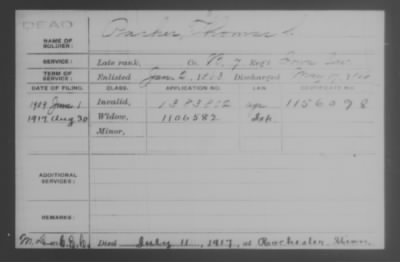 DEAD
NAME OF SOLDIER: Parker, Thomas
SERVICE: Late rank, Co. 7 Reg't
TERM OF SERVICE: Enlisted Jan 2, Discharged May
DATE OF FILING. CLASS. APPLICATION NO. LAW. CERTIFICATE NO.
June 1 Invalid, 1383802 age 1156098
1917 Aug 30 Widow, 1106582
Minor,
ADDITIONAL SERVICES:
REMARKS:
Died July 11, 1917, at Rochester, Minn.